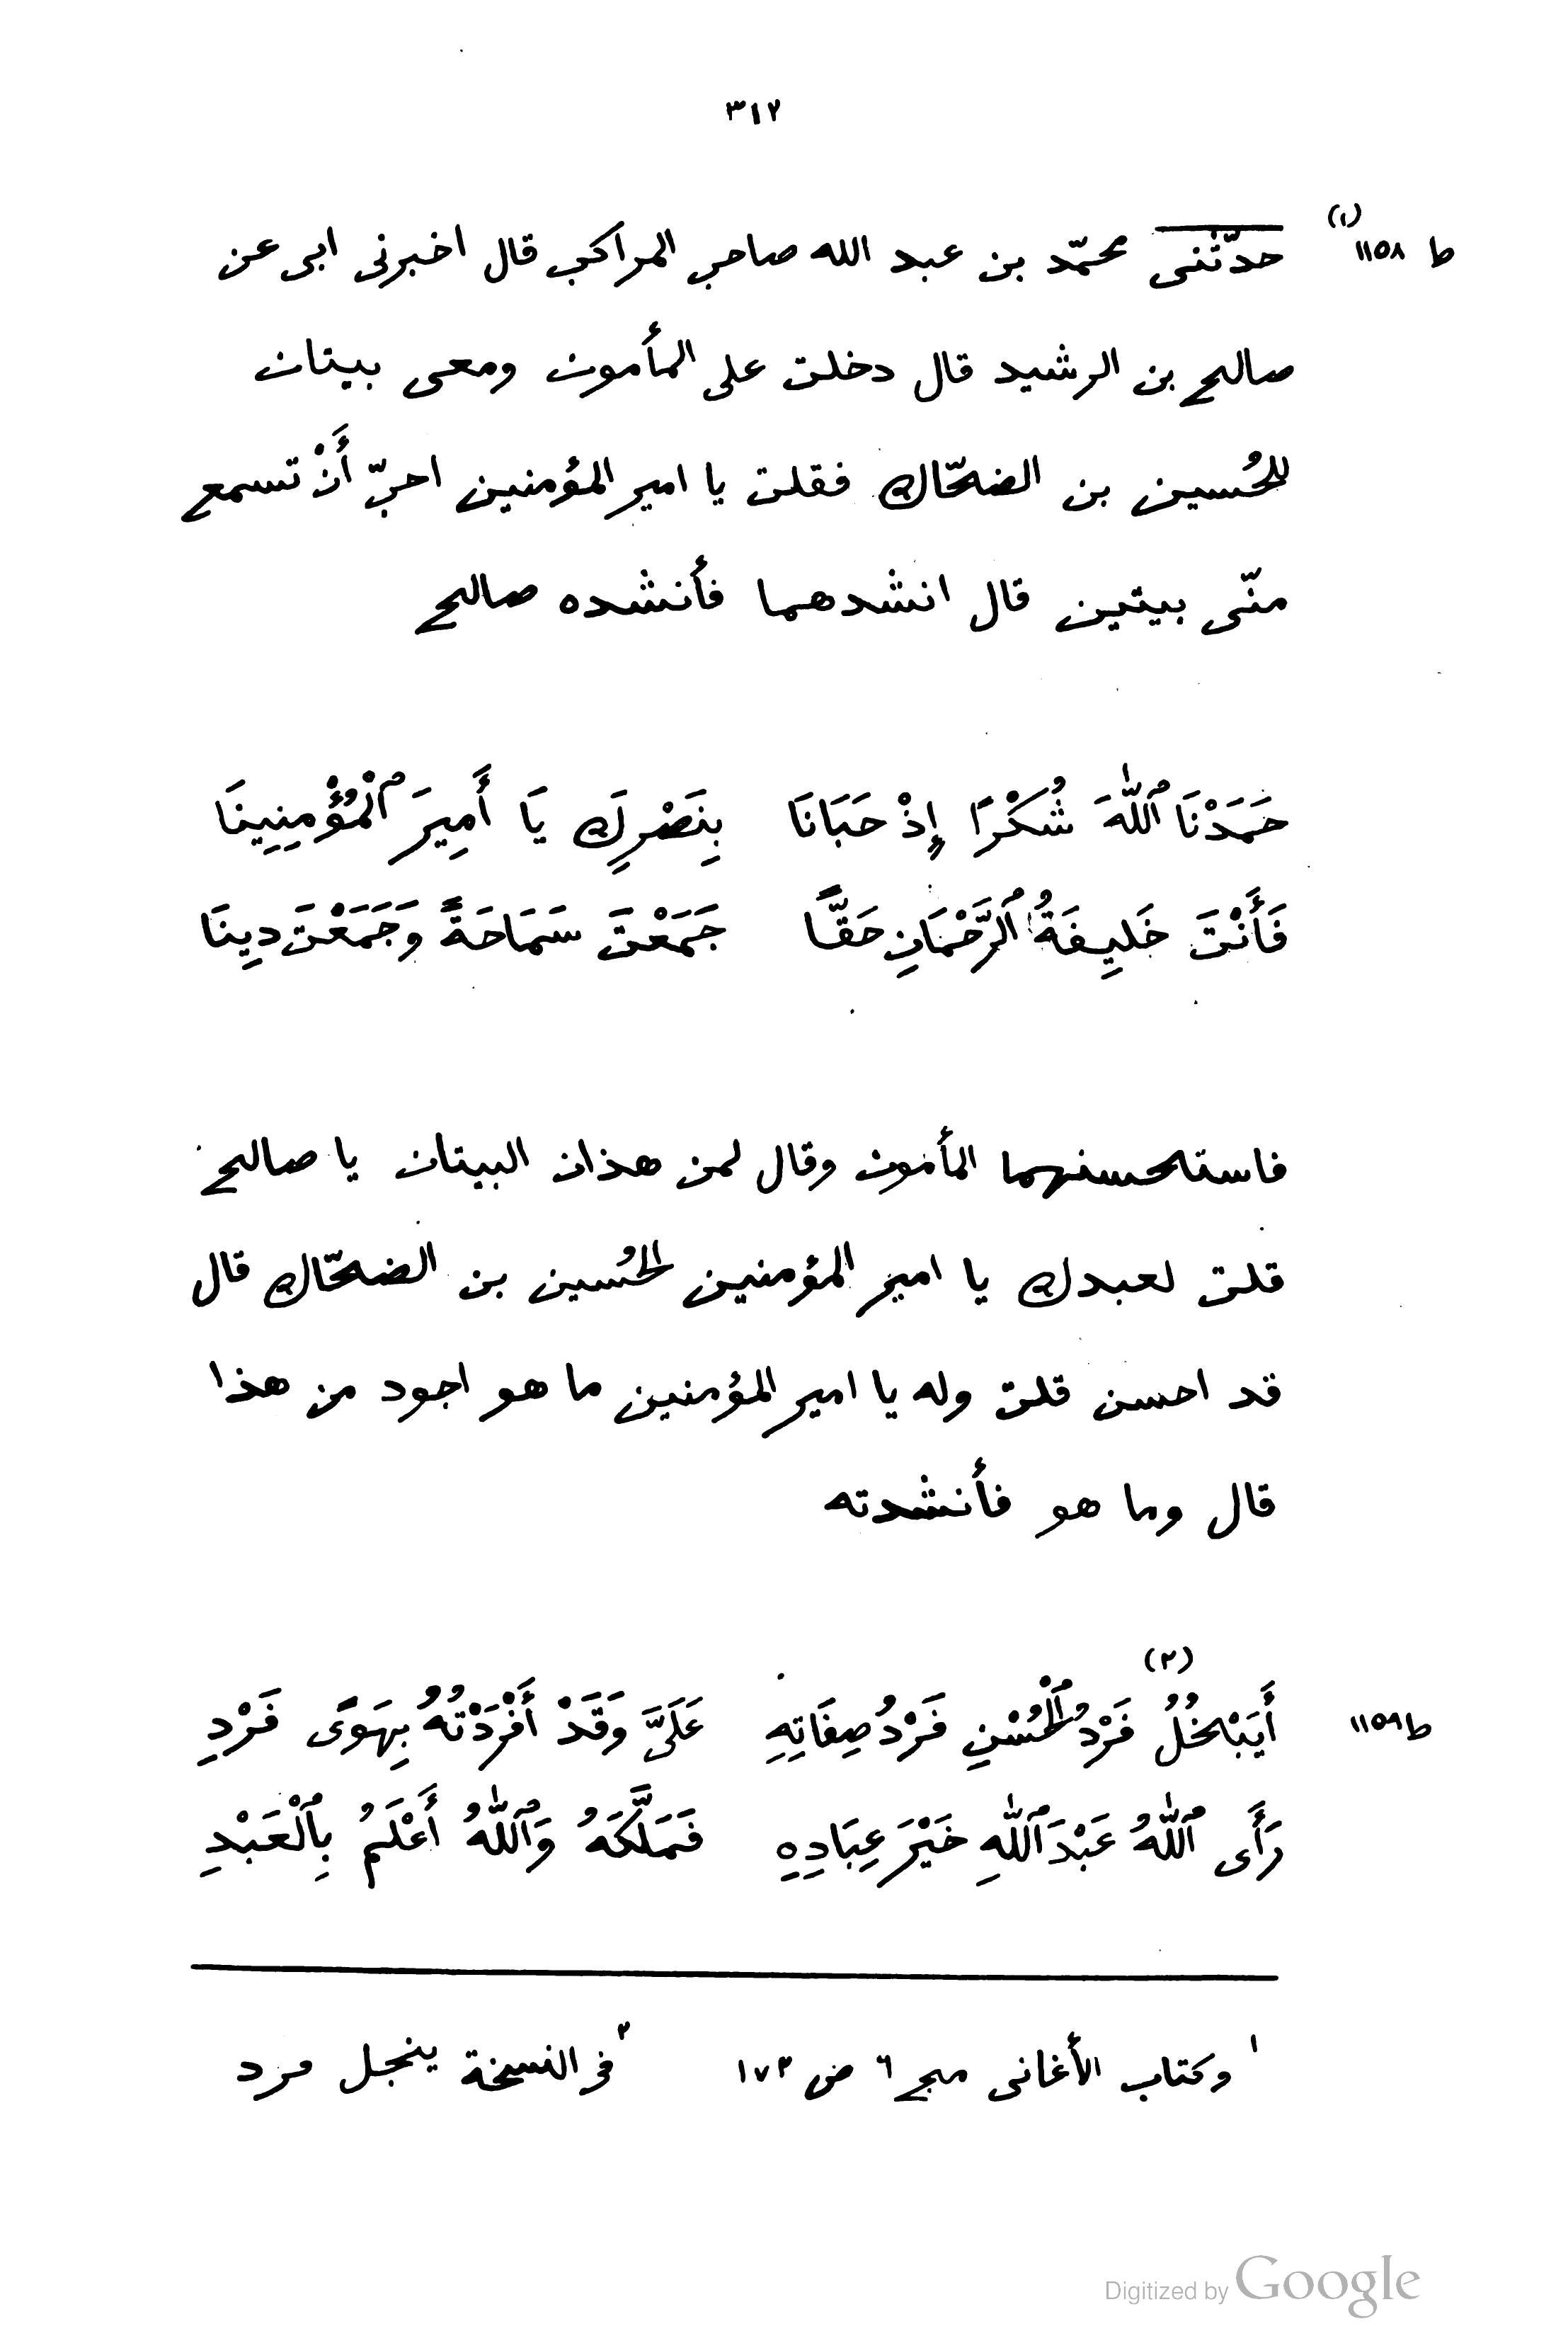 ٣١٢
ط ١١٥٨ (١) حدّثنى محمّد بن عبد الله صاحب المراكب قال اخبرنى ابى عن
صالح بن الرشيد قال دخلت على المأمون ومعى بيتان
للحُسين بن الضحّاك فقلت يا امير المؤمنين احبّ أَنْ تسمع
منّى بيتين قال انشدهما فأنشده صالح
حَمَدْنَا ٱللّٰهَ شُكْرًا إِذْ حَبَانَا بِنَصْرِكَ يَا أَمِيرَ ٱلْمُؤْمِنِينَا
فَأَنْتَ خَلِيفَةُ ٱلرَّحْمَانِ حَقًّا جَمَعْتَ سَمَاحَةً وَجَمَعْتَ دِينَا
فاستحسنهما المأمون وقال لمن هذان البيتان يا صالح
قلت لعبدك يا امير المؤمنين الحُسين بن الضحّاك قال
قد احسن قلت وله يا امير المؤمنين ما هو اجود من هذا
قال وما هو فأنشدته
ط ١١٥٩ أَيَبْخُلُ (٢) فَرْدُ ٱلْحُسْنِ فَرْدُ صِفَاتِهِ عَلَىَّ وَقَدْ أَفْرَدْتُهُ بِهَوًى فَرْدِ
رَأَى ٱللّٰهُ عَبْدَ ٱللّٰهِ خَيْرَ عِبَادِهِ فَمَلَّكَهُ وَٱللّٰهُ أَعْلَمُ بِٱلْعَبْدِ
١ وكتاب الأغانى مجـ ٦ ص ١٧٣ ٢ فى النسخة ينجل مرد
Digitized by Google